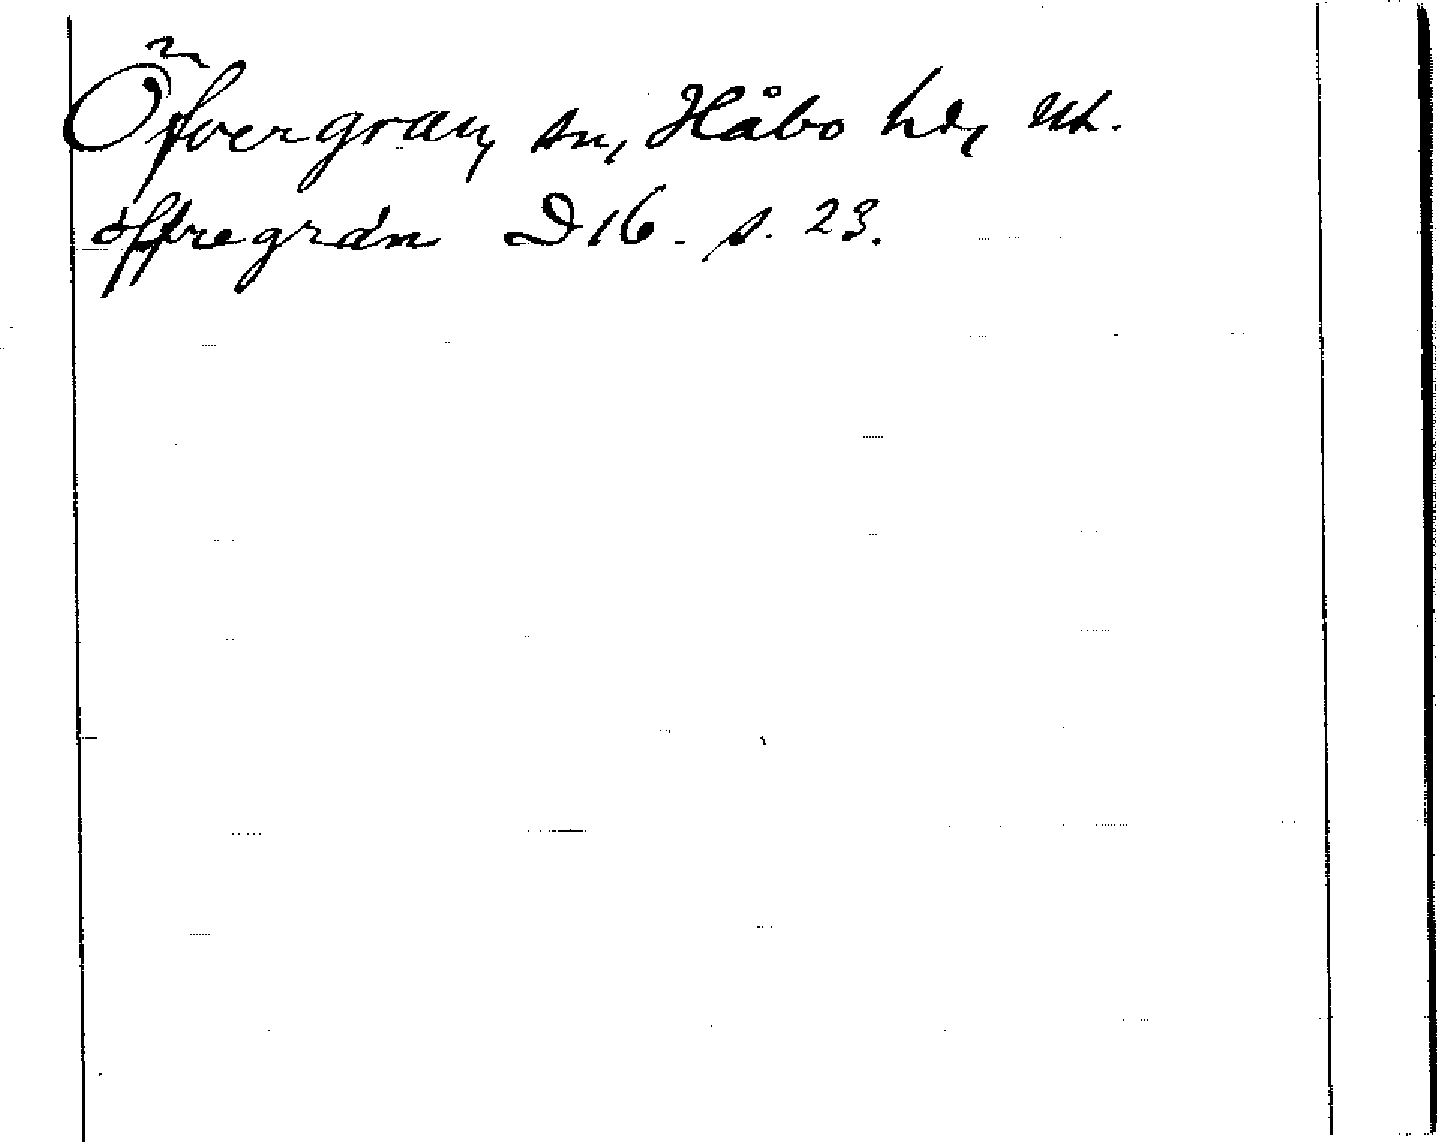 Öfvergran, sn, Håbo hd, Upl.
öffregrán D 16 - s. 23.